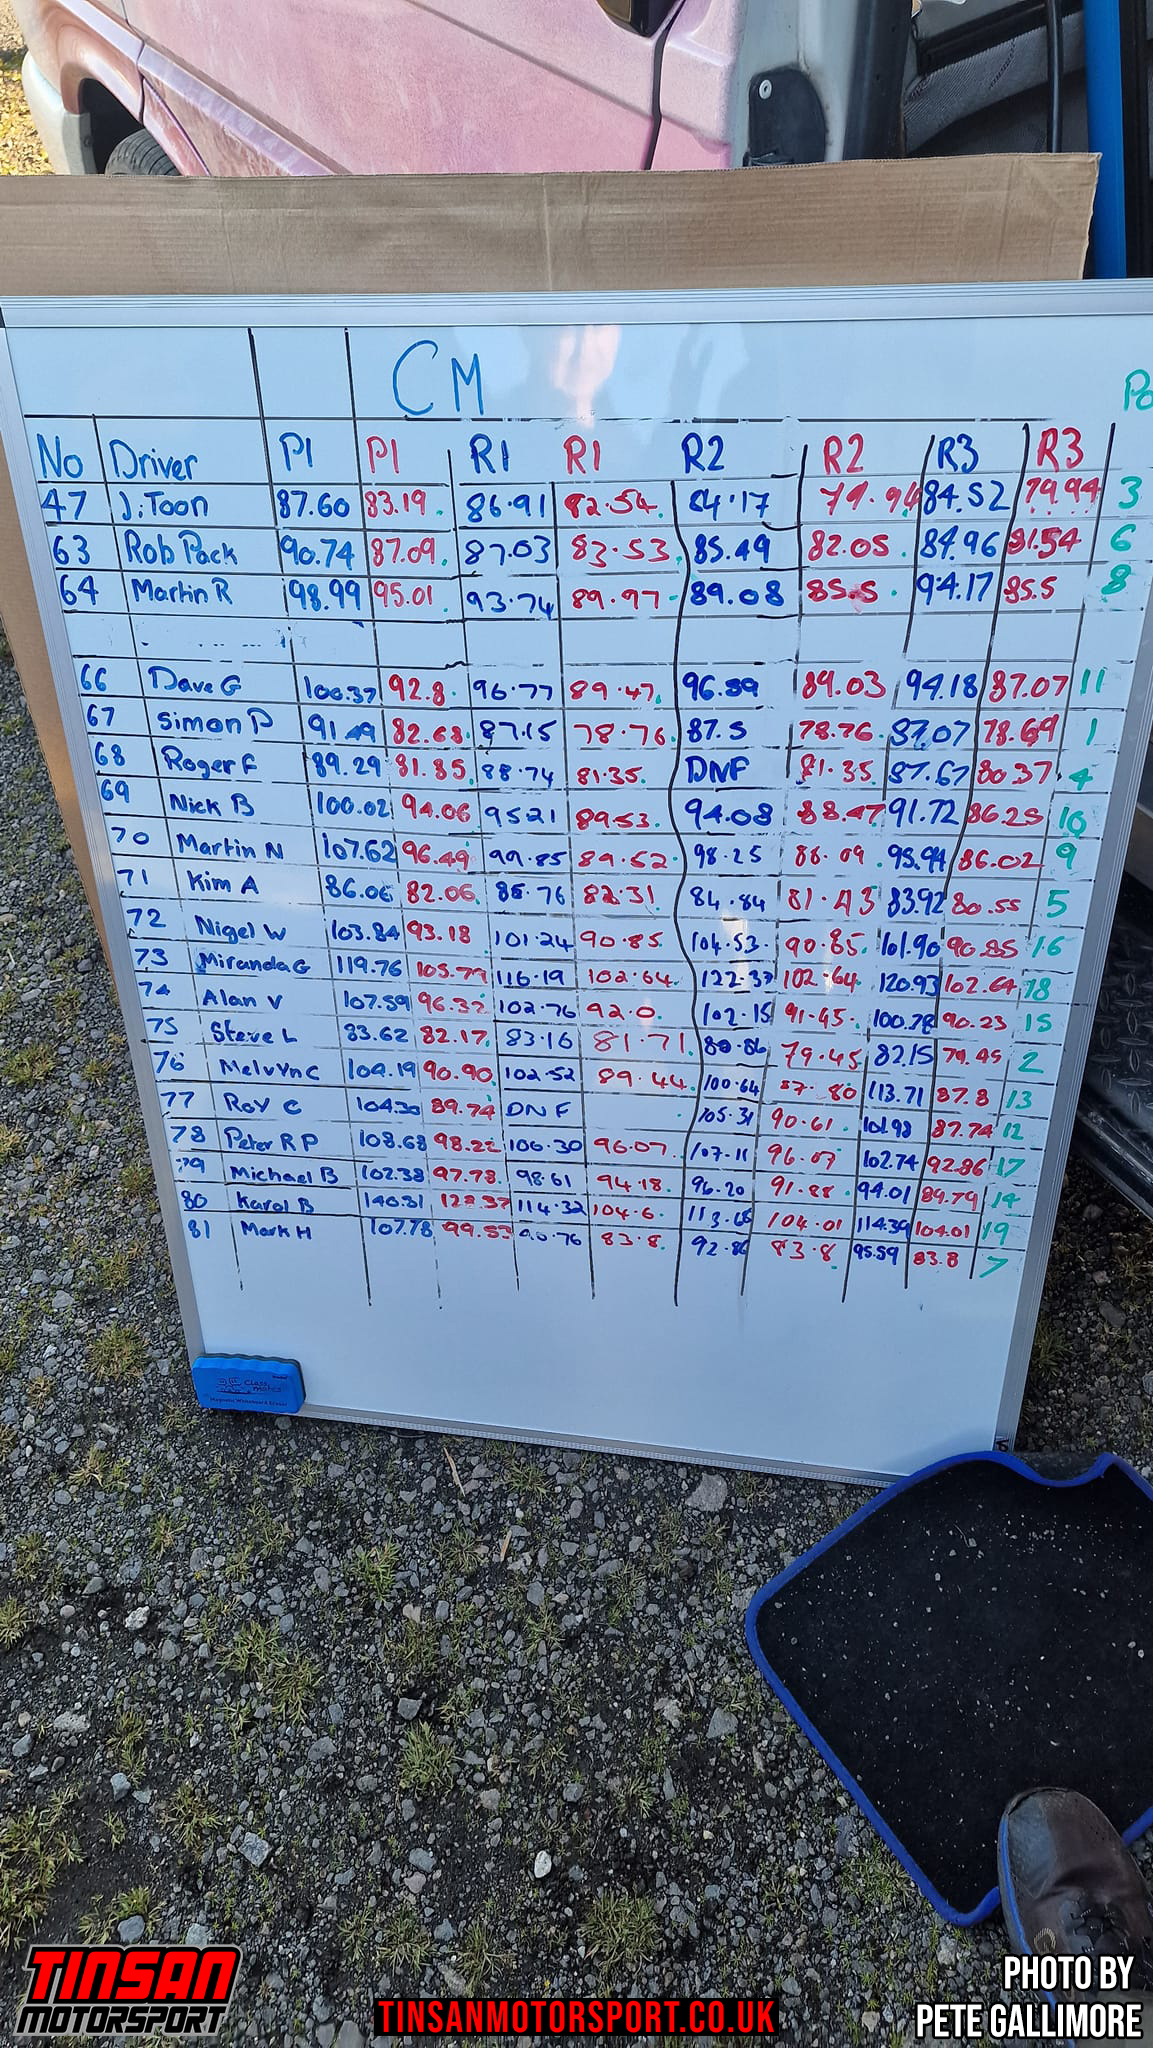 CM
Po
No Driver P1 P1 R1 R1 R2 R2 R3 R3
47 J.Toon 87.60 83.19. 86.91 82.54. 84.17 79.94 84.52 79.94 3
63 Rob Pack 90.74 87.09. 87.03 83.53. 85.49 82.05. 84.96 81.54 6
64 Martin R 98.99 95.01 93.74 89.97 89.08 85.5. 94.17 85.5 8
66 Dave G 100.37 92.8. 96.77 89.47. 96.59 89.03 94.18 87.07 11
67 Simon P 91.49 82.68. 87.15 78.76. 87.5 78.76. 87.07 78.69 1
68 Roger F 89.29 81.85. 88.74 81.35. DNF 81.35. 87.67 80.37. 4
69 Nick B 100.02 94.06 95.21 89.53. 94.08 88.47 91.72 86.25 10
70 Martin N 107.62 96.49 99.85 89.52. 98.25 88.09. 95.94 86.02 9
71 Kim A 86.06 82.06. 85.76 82.31. 84.84 81.43 83.92 80.55 5
72 Nigel W 103.84 93.18 101.24 90.85. 104.53. 90.85. 101.90 90.85 16
73 Miranda G 119.76 105.77 116.19 102.64. 122.37 102.64. 120.93 102.64 18
74 Alan V 107.59 96.32. 102.76 92.0. 102.15 91.45. 100.78 90.23 15
75 Steve L 83.62 82.17. 83.16 81.71. 80.86 79.45 82.15 79.45 2
76 Melvyn C 104.19 90.90. 102.52 89.44. 100.64 87.80 113.71 87.8 13
77 Roy C 104.30 89.74 DNF 105.31 90.61. 101.98 87.74 12
78 Peter R P 108.68 98.22 106.30 96.07. 107.11 96.07 102.74 92.86 17
79 Michael B 102.38 97.78. 98.61 94.18. 96.20 91.88. 94.01 89.79 14
80 Karol B 140.31 128.37 114.32 104.6. 113.68 104.01 114.39 104.01 19
81 Mark H 107.78 99.53 90.76 83.8. 92.86 83.8. 95.59 83.8 7
Class
mates
Magnetic Whiteboard Eraser
TINSAN
MOTORSPORT
TINSANMOTORSPORT.CO.UK
PHOTO BY
PETE GALLIMORE